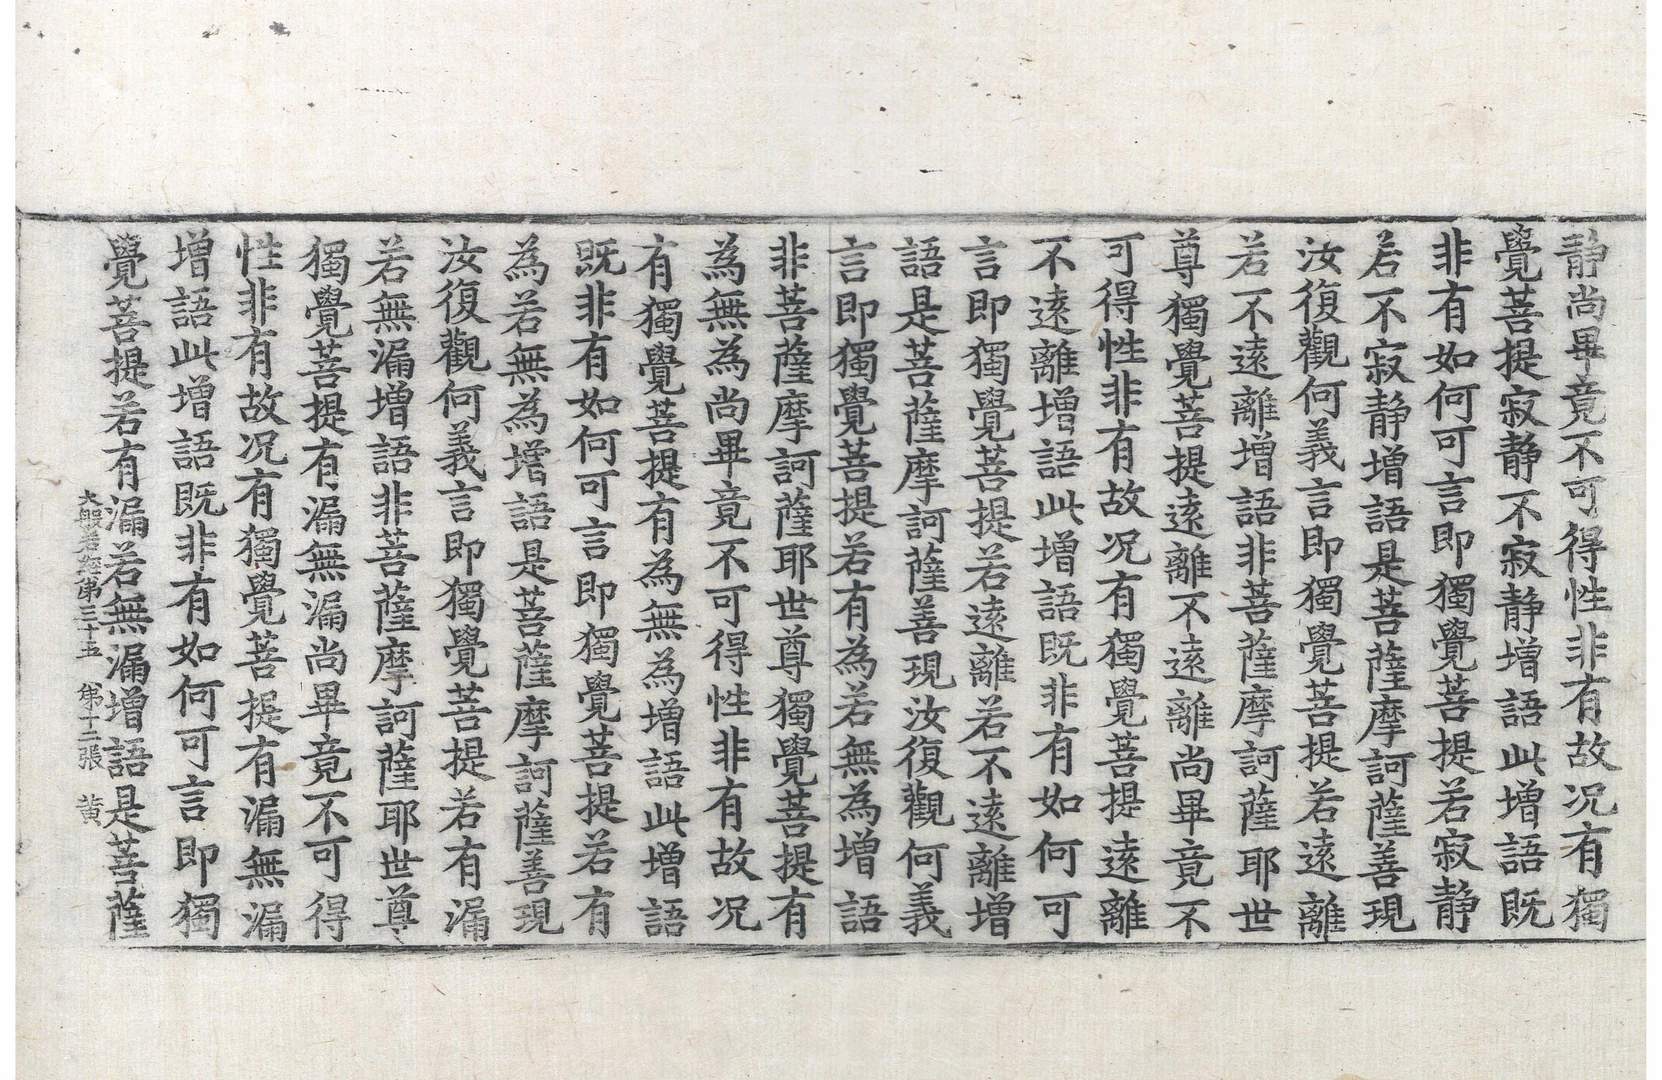 静尚畢竟不可得性非有故况有獨
覺菩提寂静不寂静增語此增語既
非有如何可言即獨覺菩提若寂静
若不寂静增語是菩薩摩訶薩善現
汝復觀何義言即獨覺菩提若遠離
若不遠離增語非菩薩摩訶薩耶世
尊獨覺菩提遠離不遠離尚畢竟不
可得性非有故况有獨覺菩提遠離
不遠離增語此增語既非有如何可
言即獨覺菩提若遠離若不遠離增
語是菩薩摩訶薩善現汝復觀何義
言即獨覺菩提若有為若無為增語
非菩薩摩訶薩耶世尊獨覺菩提有
為無為尚畢竟不可得性非有故况
有獨覺菩提有為無為增語此增語
既非有如何可言即獨覺菩提若有
為若無為增語是菩薩摩訶薩善現
汝復觀何義言即獨覺菩提若有漏
若無漏增語非菩薩摩訶薩耶世尊
獨覺菩提有漏無漏尚畢竟不可得
性非有故况有獨覺菩提有漏無漏
增語此增語既非有如何可言即獨
覺菩提若有漏若無漏增語是菩薩
大般若經第三十五 第十二張 黄